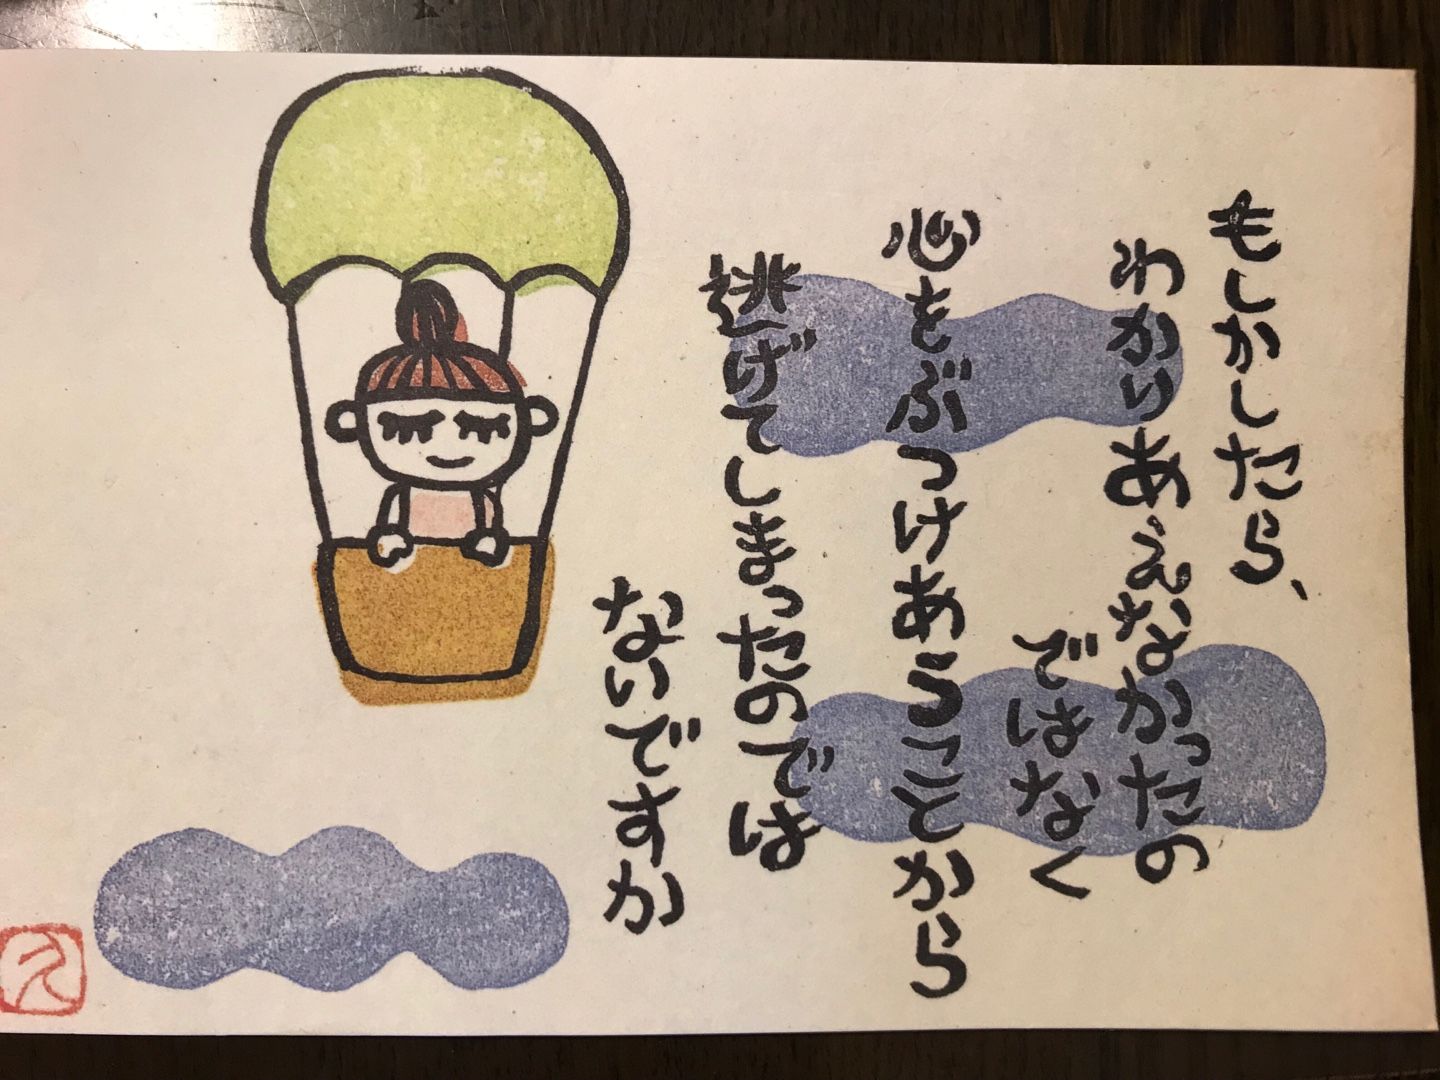 もしかしたら、
わかりあえなかったの
ではなく
心をぶつけあうことから
逃げてしまったのでは
ないですか
え